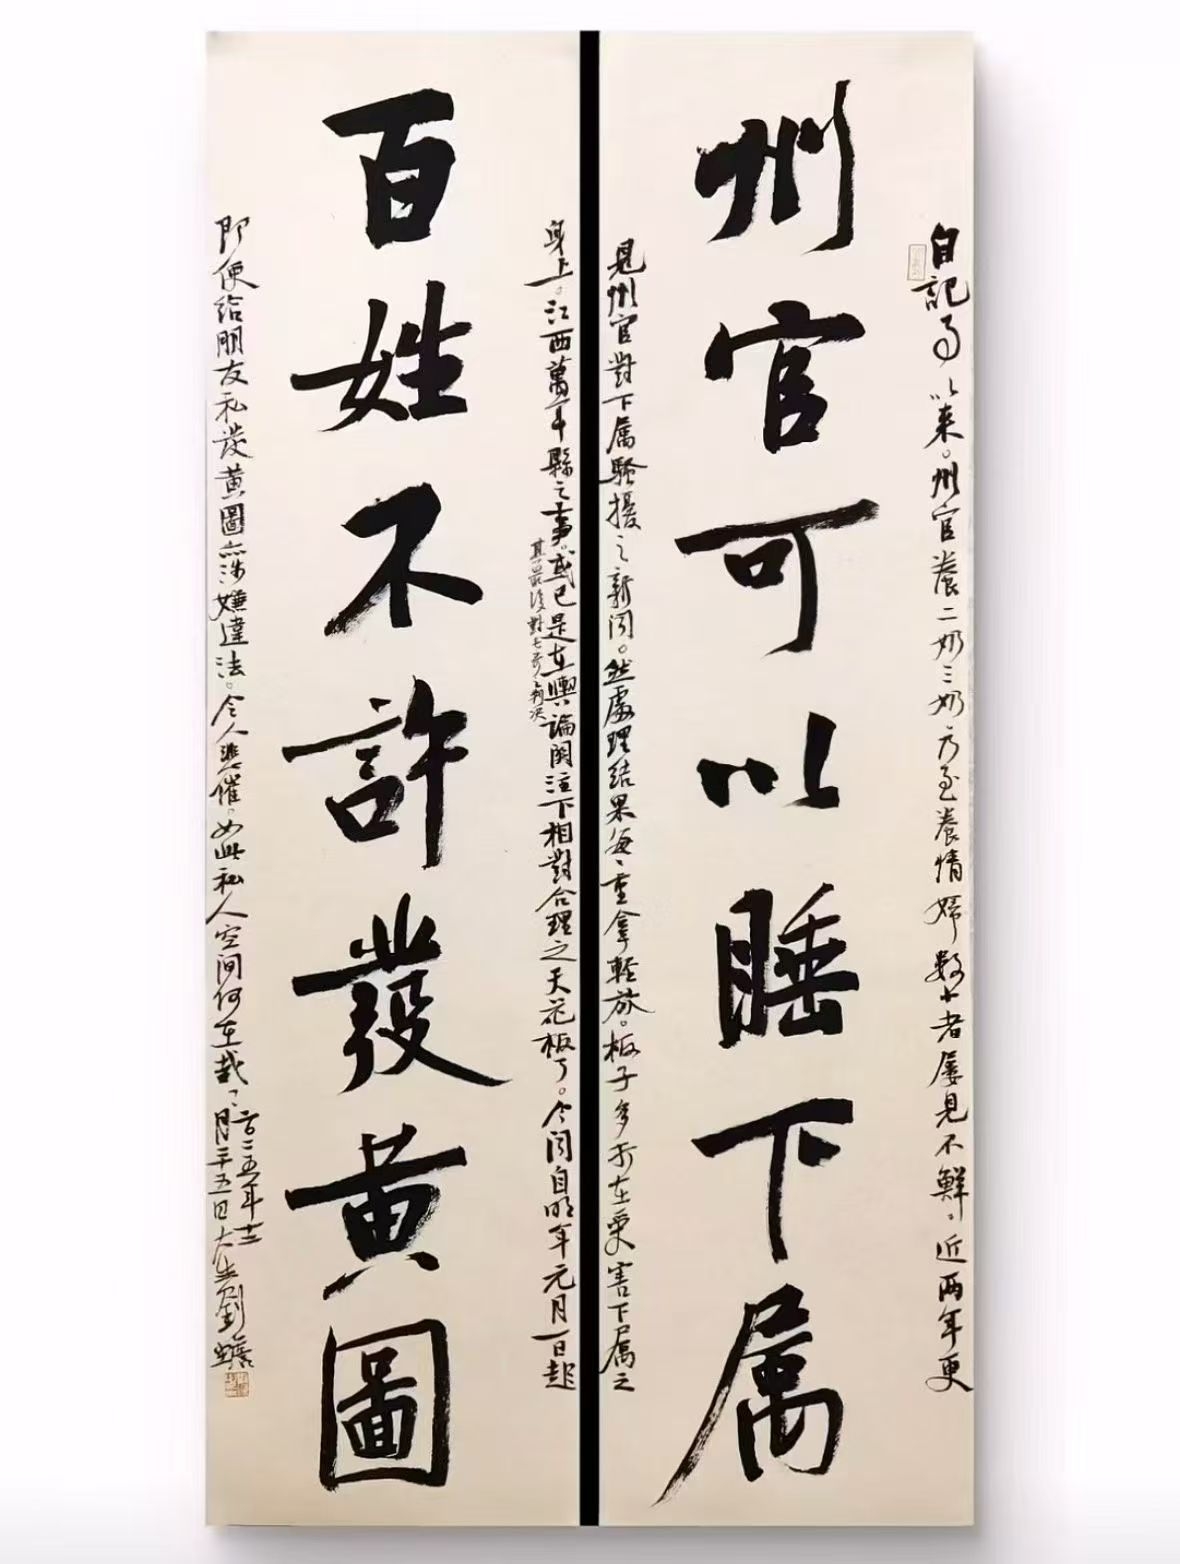 州官可以睡下属
百姓不許發黄圖
自記事以来。州官養二奶三奶方至養情婦數十者屡見不鮮、近两年更
見州官對下属騷擾之新闻。然處理结果每、重拿輕放。板子多打在受害下属之
身上。江西萬年縣之事。或已是在輿論関注下相對合理之天花板了。今闻自明年元月一日起
其最後對之判决
即便给朋友私發黄圖亦涉嫌違法。令人悲催。如此私人空间何在哉、
二五年十二
月二十五日大生劉